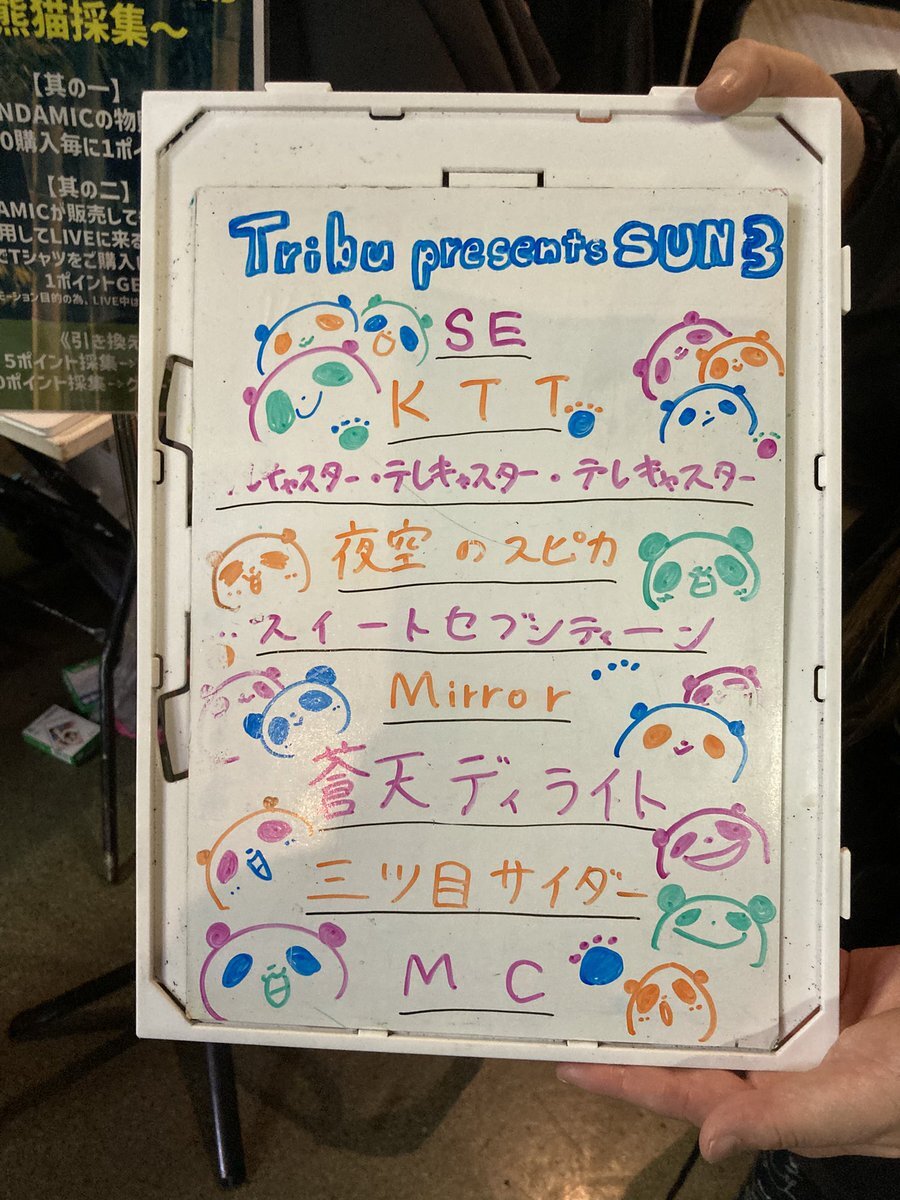 熊猫採集～
【其の一】
NDAMICの物
0購入毎に1ポイ
【其の二】
AMICが販売して
用してLIVEに来る
でTシャツをご購入
1ポイントGE
モーション目的の為、LIVE中は
《引き換え
5ポイント採集->
0ポイント採集->
Tribu presents SUN3
SE
KTT
レキャスター・テレキャスター・テレキャスター
夜空のスピカ
スイートセブンティーン
Mirror
蒼天ディライト
三ツ目サイダー
MC